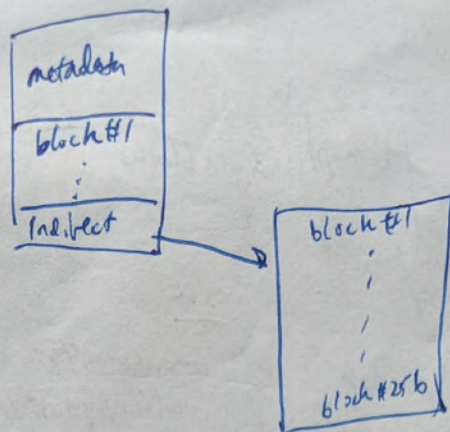 metadata
block #1
Indirect
block #1
block #256